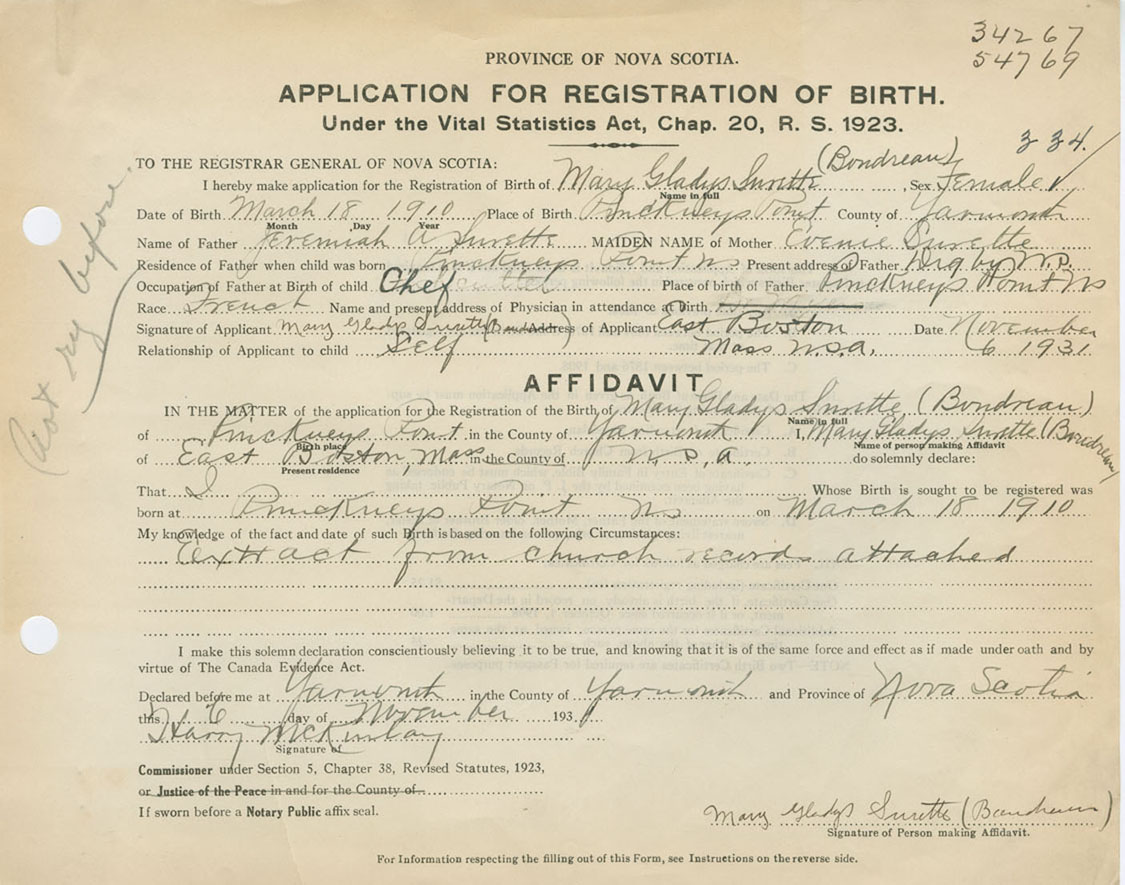 34267
54769
PROVINCE OF NOVA SCOTIA.
APPLICATION FOR REGISTRATION OF BIRTH.
Under the Vital Statistics Act, Chap. 20, R. S. 1923.
334.
TO THE REGISTRAR GENERAL OF NOVA SCOTIA: (Boudreau)
I hereby make application for the Registration of Birth of Mary Gladys Surette , Sex Female
Name in full
Date of Birth March 18 1910 Place of Birth Pinckneys Point County of Yarmouth
Month Day Year
Name of Father Jeremiah A Surette MAIDEN NAME of Mother Evenie Surette
Residence of Father when child was born Pinckneys Point NS Present address of Father Digby N.S.
Occupation of Father at Birth of child Chef Place of birth of Father Pinckneys Point NS
Race French Name and present address of Physician in attendance at Birth
Signature of Applicant Mary Gladys Surette (Boudreau) Address of Applicant East Boston Date November
Relationship of Applicant to child Self Mass U.S.A. 6 1931
AFFIDAVIT
IN THE MATTER of the application for the Registration of the Birth of Mary Gladys Surette (Boudreau)
Name in full
of Pinckneys Point in the County of Yarmouth I, Mary Gladys Surette (Boudreau)
Birth place Name of person making Affidavit
of East Boston, Mass in the County of U.S.A. do solemnly declare:
Present residence
That I Whose Birth is sought to be registered was
born at Pinckneys Point NS on March 18 1910
My knowledge of the fact and date of such Birth is based on the following Circumstances:
Extract from church records attached
I make this solemn declaration conscientiously believing it to be true, and knowing that it is of the same force and effect as if made under oath and by
virtue of The Canada Evidence Act.
Declared before me at Yarmouth in the County of Yarmouth and Province of Nova Scotia
this 6 day of November 1931
Harry McKinlay
Signature of
Commissioner under Section 5, Chapter 38, Revised Statutes, 1923,
or Justice of the Peace in and for the County of
If sworn before a Notary Public affix seal.
Mary Gladys Surette (Boudreau)
Signature of Person making Affidavit.
For Information respecting the filling out of this Form, see Instructions on the reverse side.
Not reg before